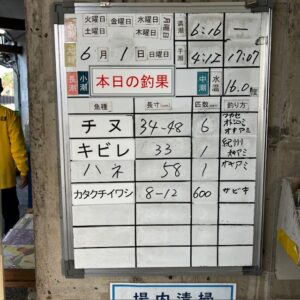 火曜日 金曜日 水曜日 月曜日
土曜日 日曜日 木曜日
満潮 6:16 —
6月1日 日曜日 干潮 4:12 17:07
長潮 小潮 本日の釣果 中潮 水温 16.0
魚種 長寸(cm) 匹数(匹) 釣り方
チヌ 34-48 6 フカセ
オキアミ
キビレ 33 1 紀州
オキアミ
ハネ 58 1 オキアミ
カタクチイワシ 8-12 600 サビキ
場内清掃